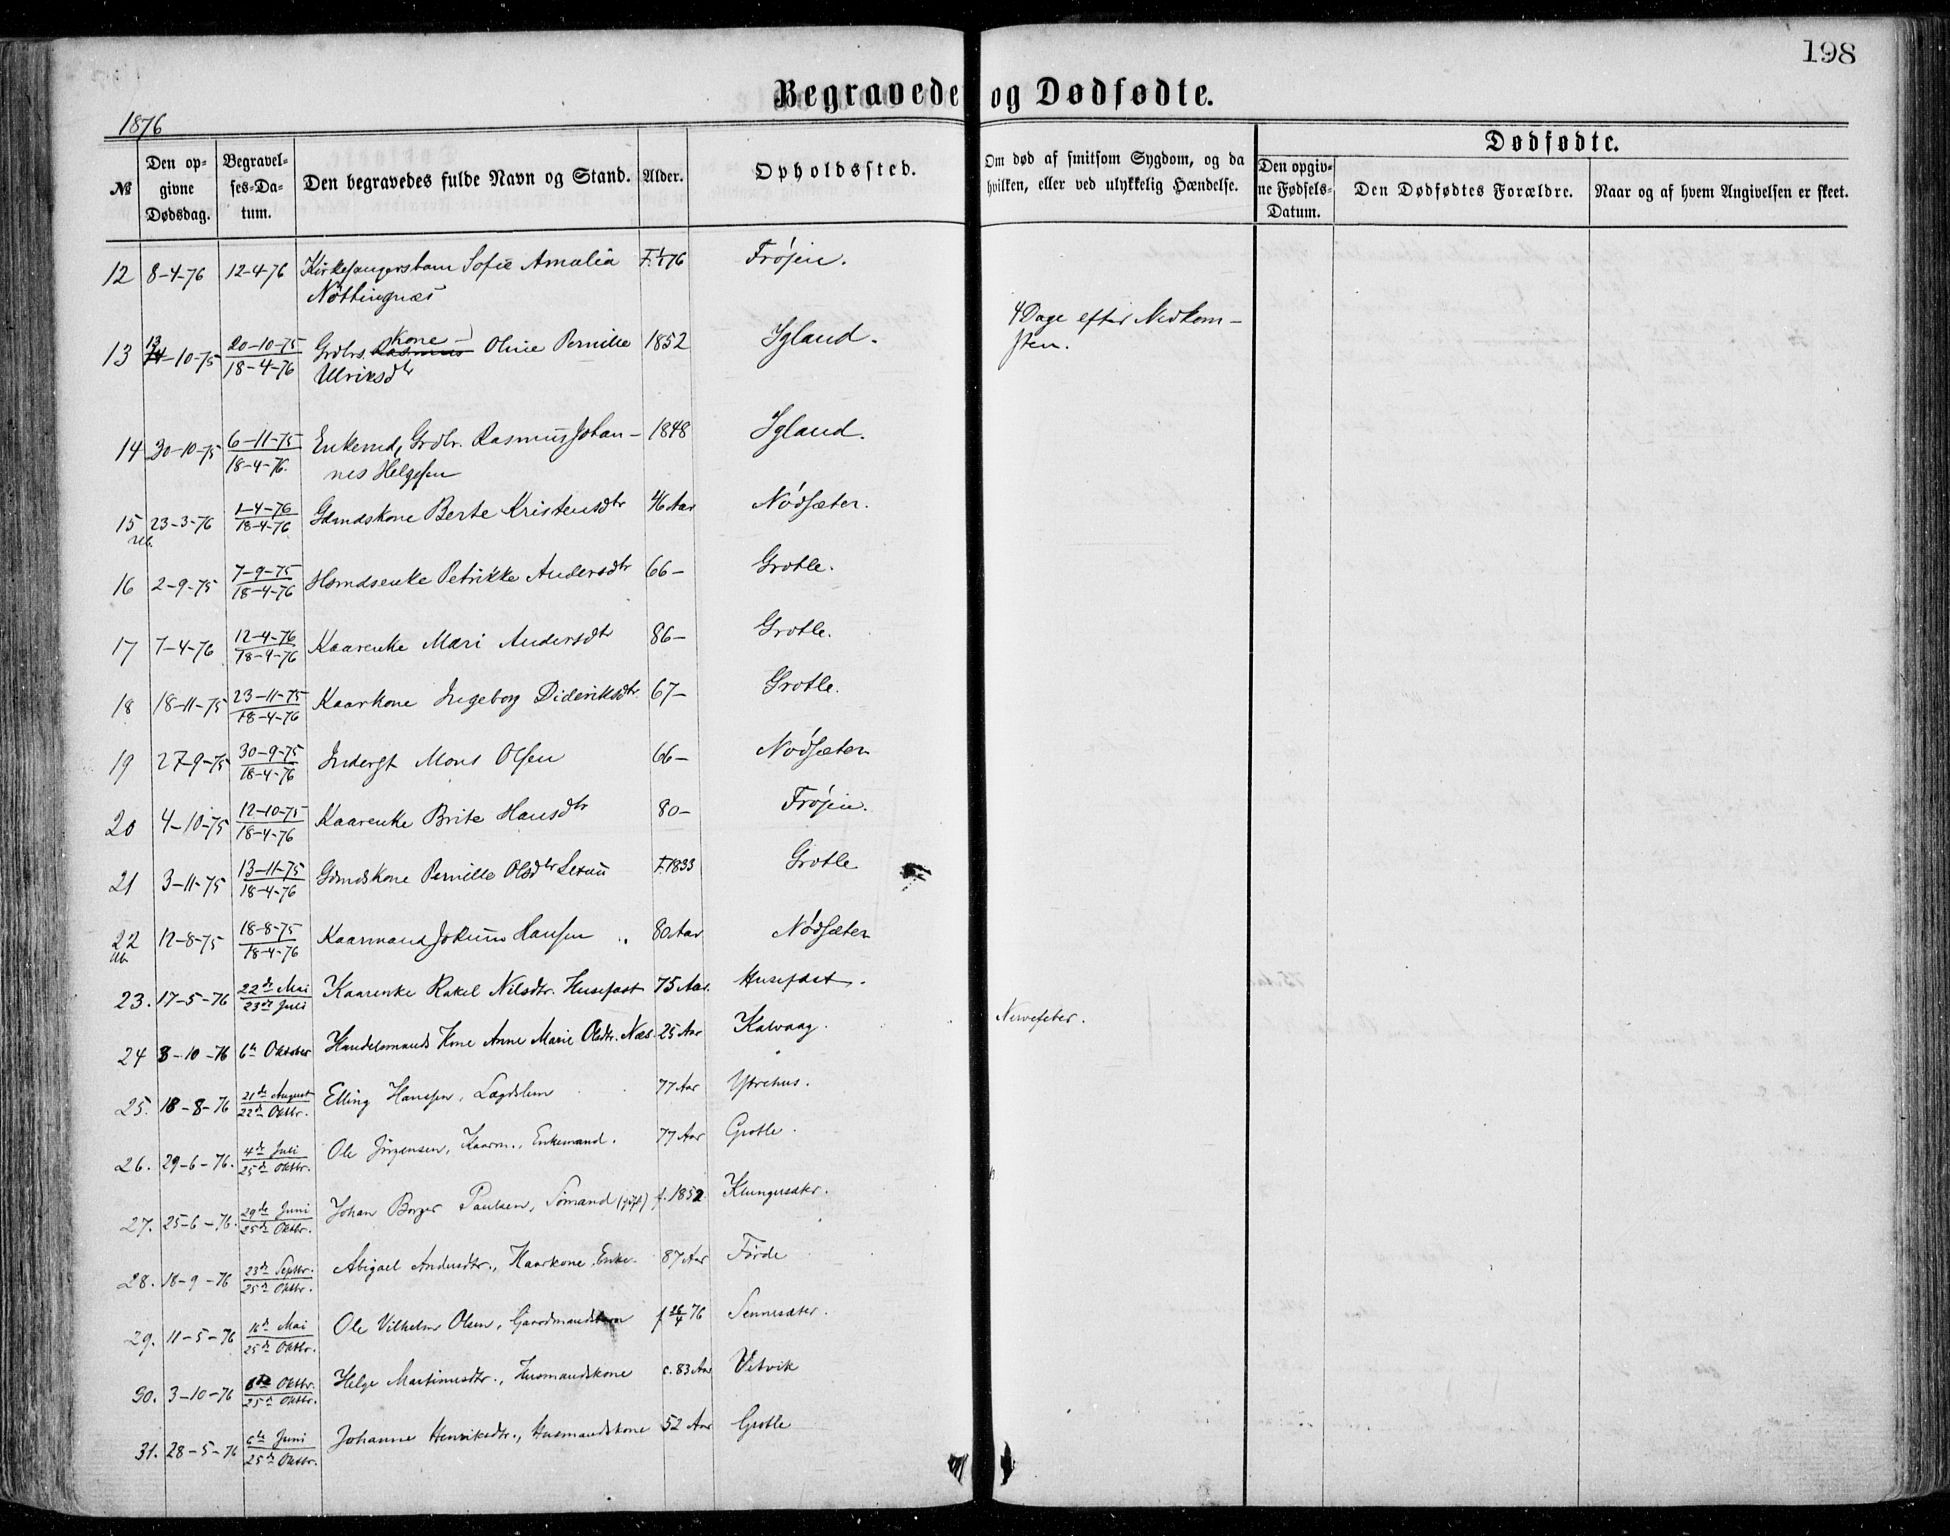 198
Begravede og Dødfødte.
1876
№
Den opgivne Dødsdag.
Begravelses-Datum.
Den begravedes fulde Navn og Stand.
Alder.
Opholdssted.
Om død af smitsom Sygdom, og da hvilken, eller ved ulykkelig Hændelse.
Dødfødte.
Den opgivne Fødsels-Datum.
Den Dødfødtes Forældre.
Naar og af hvem Angivelsen er skeet.
12 8-4-76 12-4-76 Kirkesangersbarn Sofie Amalia Frøjen.
Nøttingnæs
13 13-10-75 20-10-75 / 18-4-76 Grdbrs. Kone Oline Pernille 1852 Igland. 4 Dage efter Nedkom-
Ulriksdtr sten.
14 30-10-75 6-11-75 / 18-4-76. Enkemd, Grdbr. Rasmus Johan- 1848 Igland.
nes Helgesen
15 23-3-76 1-4-76 / 18-4-76. Gdmdskone Berte Kristensdtr 46 Aar Nødsæter.
16 2-9-75 7-9-75 / 18-4-76 Hsmdsenke Petrikke Andersdtr 66- Grotle.
17 7-4-76 12-4-76 / 18-4-76 Kaarenke Mari Andersdtr 86- Grotle.
18 18-11-75 23-11-75 / 18-4-76 Kaarkone Ingeborg Dideriksdtr. 67- Grotle.
19 27-9-75 30-9-75 / 18-4-76 Inderst Mons Olsen 66- Nødsæter
20 4-10-75 12-10-75 / 18-4-76 Kaarenke Brite Hansdtr 80- Frøjen.
21 3-11-75 13-11-75 / 18-4-76 Gdmdskone Pernille Olsdtr F. 1833 Grotle
22 12-8-75 18-8-75 / 18-4-76 Kaarmand Jokum Hansen 80 Aar Nødsæter
23. 17-5-76 22de Mai / 23de Juli Kaarenke Rakel Nilsdtr. Husefast 75 Aar. Husefast.
24 3-10-76 6te Oktober Handelsmands Kone Anne Marie Olsdtr. Næs. 25 Aar Kalvaag. Nervefeber.
25. 18-8-76 21de August / 22de Oktbr. Elling Hanssen, Lægdslem 77 Aar Ytrehus.
26. 29-6-76. 4de Juli / 25de Oktbr. Ole Jørgensen, Kaarm., Enkemand. 77 Aar Grotle.
27. 25-6-76. 29de Juni / 25de Oktbr. Johan Borger Paulsen, Sømand (gift) f. 1852 Klungersæter.
28. 18-9-76 23de Septbr. / 25de Oktbr. Abigael Andersdtr., Kaarkone, Enke. 87 Aar Førde
29. 11-5-76 16de Mai / 25de Oktbr. Ole Vilhelm Olsen, Gaardmandsbarn f 26/4 76 Sennesæter.
30. 3-10-76 8de Oktbr. / 25de Oktbr. Helge Martinusdtr., Husmandskone c. 83 Aar Vetvik
31. 28-5-76 6te Juni / 25de Oktbr. Johanne Henriksdtr., Husmandskone 52 Aar Grotle